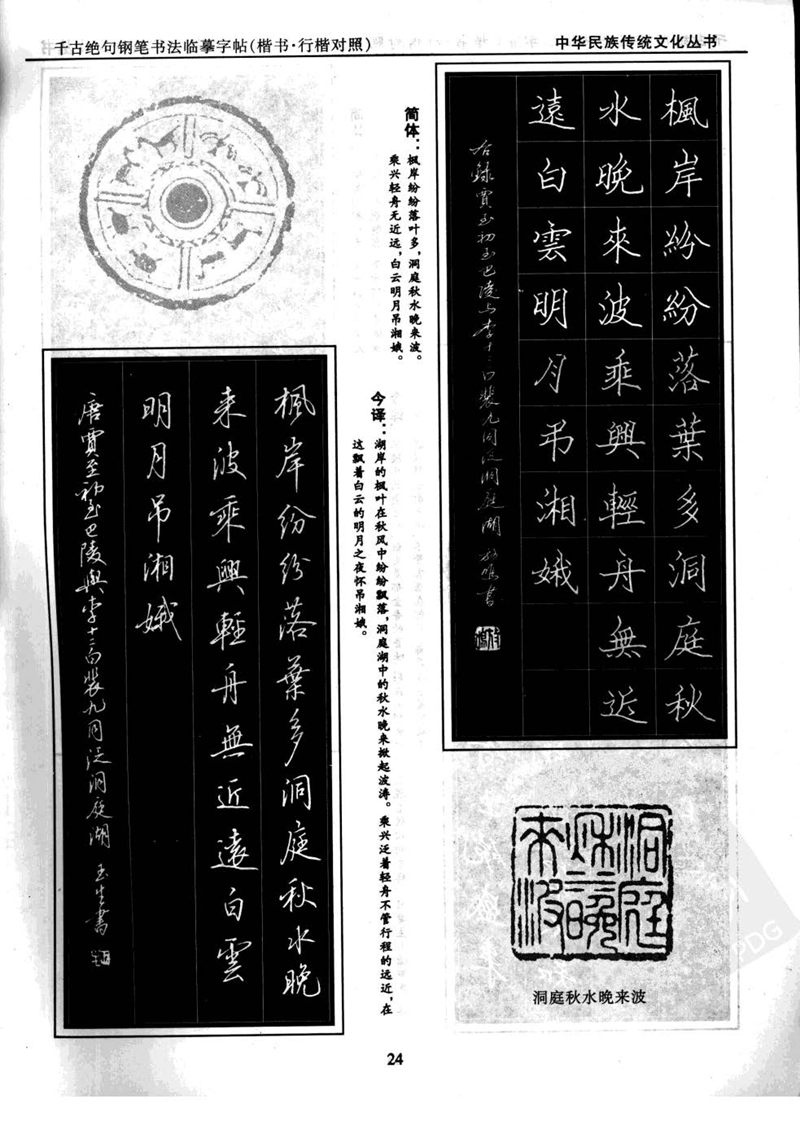 千古绝句钢笔书法临摹字帖(楷书·行楷对照)
中华民族传统文化丛书
楓岸紛紛落葉多洞庭秋
水晚來波乘興輕舟無近
遠白雲明月弔湘娥
简体：枫岸纷纷落叶多，洞庭秋水晚来波。
乘兴轻舟无近远，白云明月吊湘娥。
今译：湖岸的枫叶在秋风中纷纷飘落，洞庭湖中的秋水晚来掀起波涛。乘兴泛着轻舟不管行程的远近，在
这飘着白云的明月之夜怀吊湘娥。
楓岸紛紛落葉多洞庭秋水晚
来波乘興輕舟無近遠白雲
明月吊湘娥
唐賈至初至巴陵與李十二白裴九同泛洞庭湖 玉生書
洞庭秋水晚来波
洞庭秋水晚来波
24